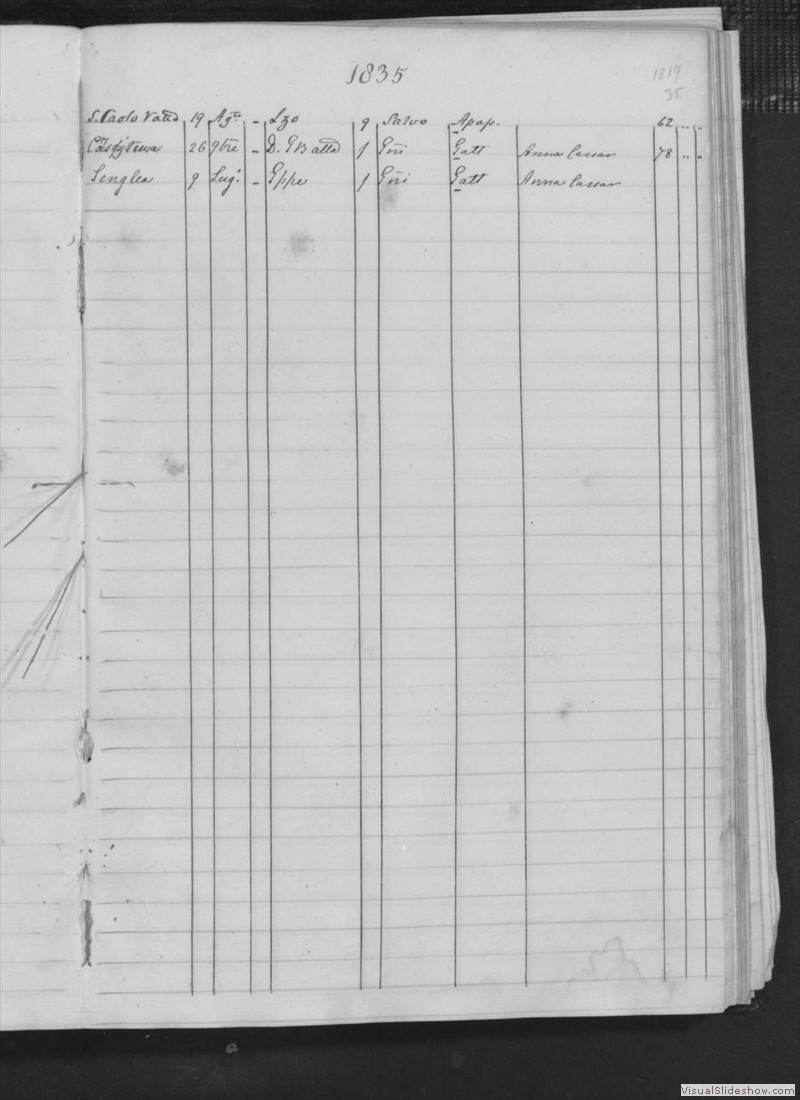 1835
1819
35
S. Paolo Valta 19 Ag.to - Lzo 9 Salvo Apap. 62 " "
26 9bre - D. GBatta f Gni Gatt Anna Cassar 78 " "
Senglea 9 Lug.o - Gppe f Gni Gatt Anna Cassar
VisualSlideshow.com